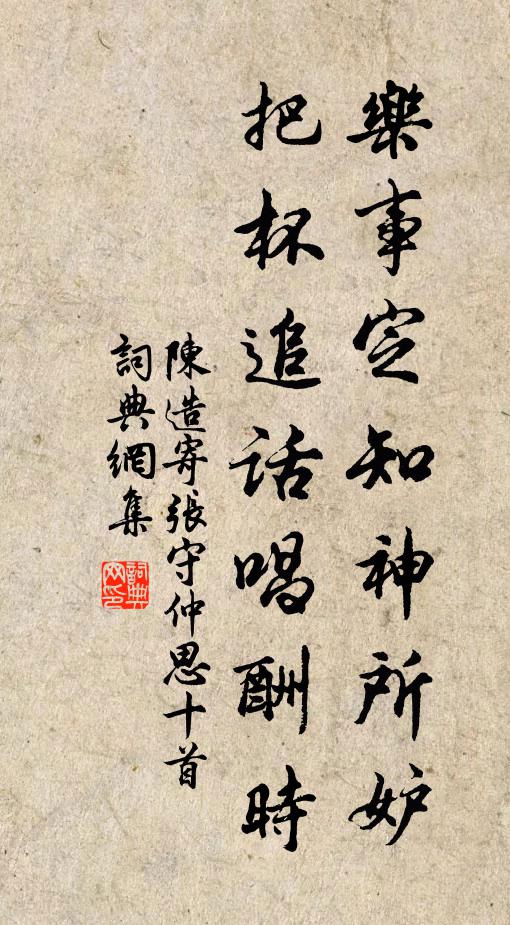 樂事定知神所妒
把杯追話唱酬時
陳造寄張守仲思十首
詞典網集
詞典网印